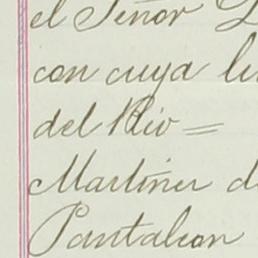 el Señor
con cuya li
del Rio =
Martinez d
Pantaleon